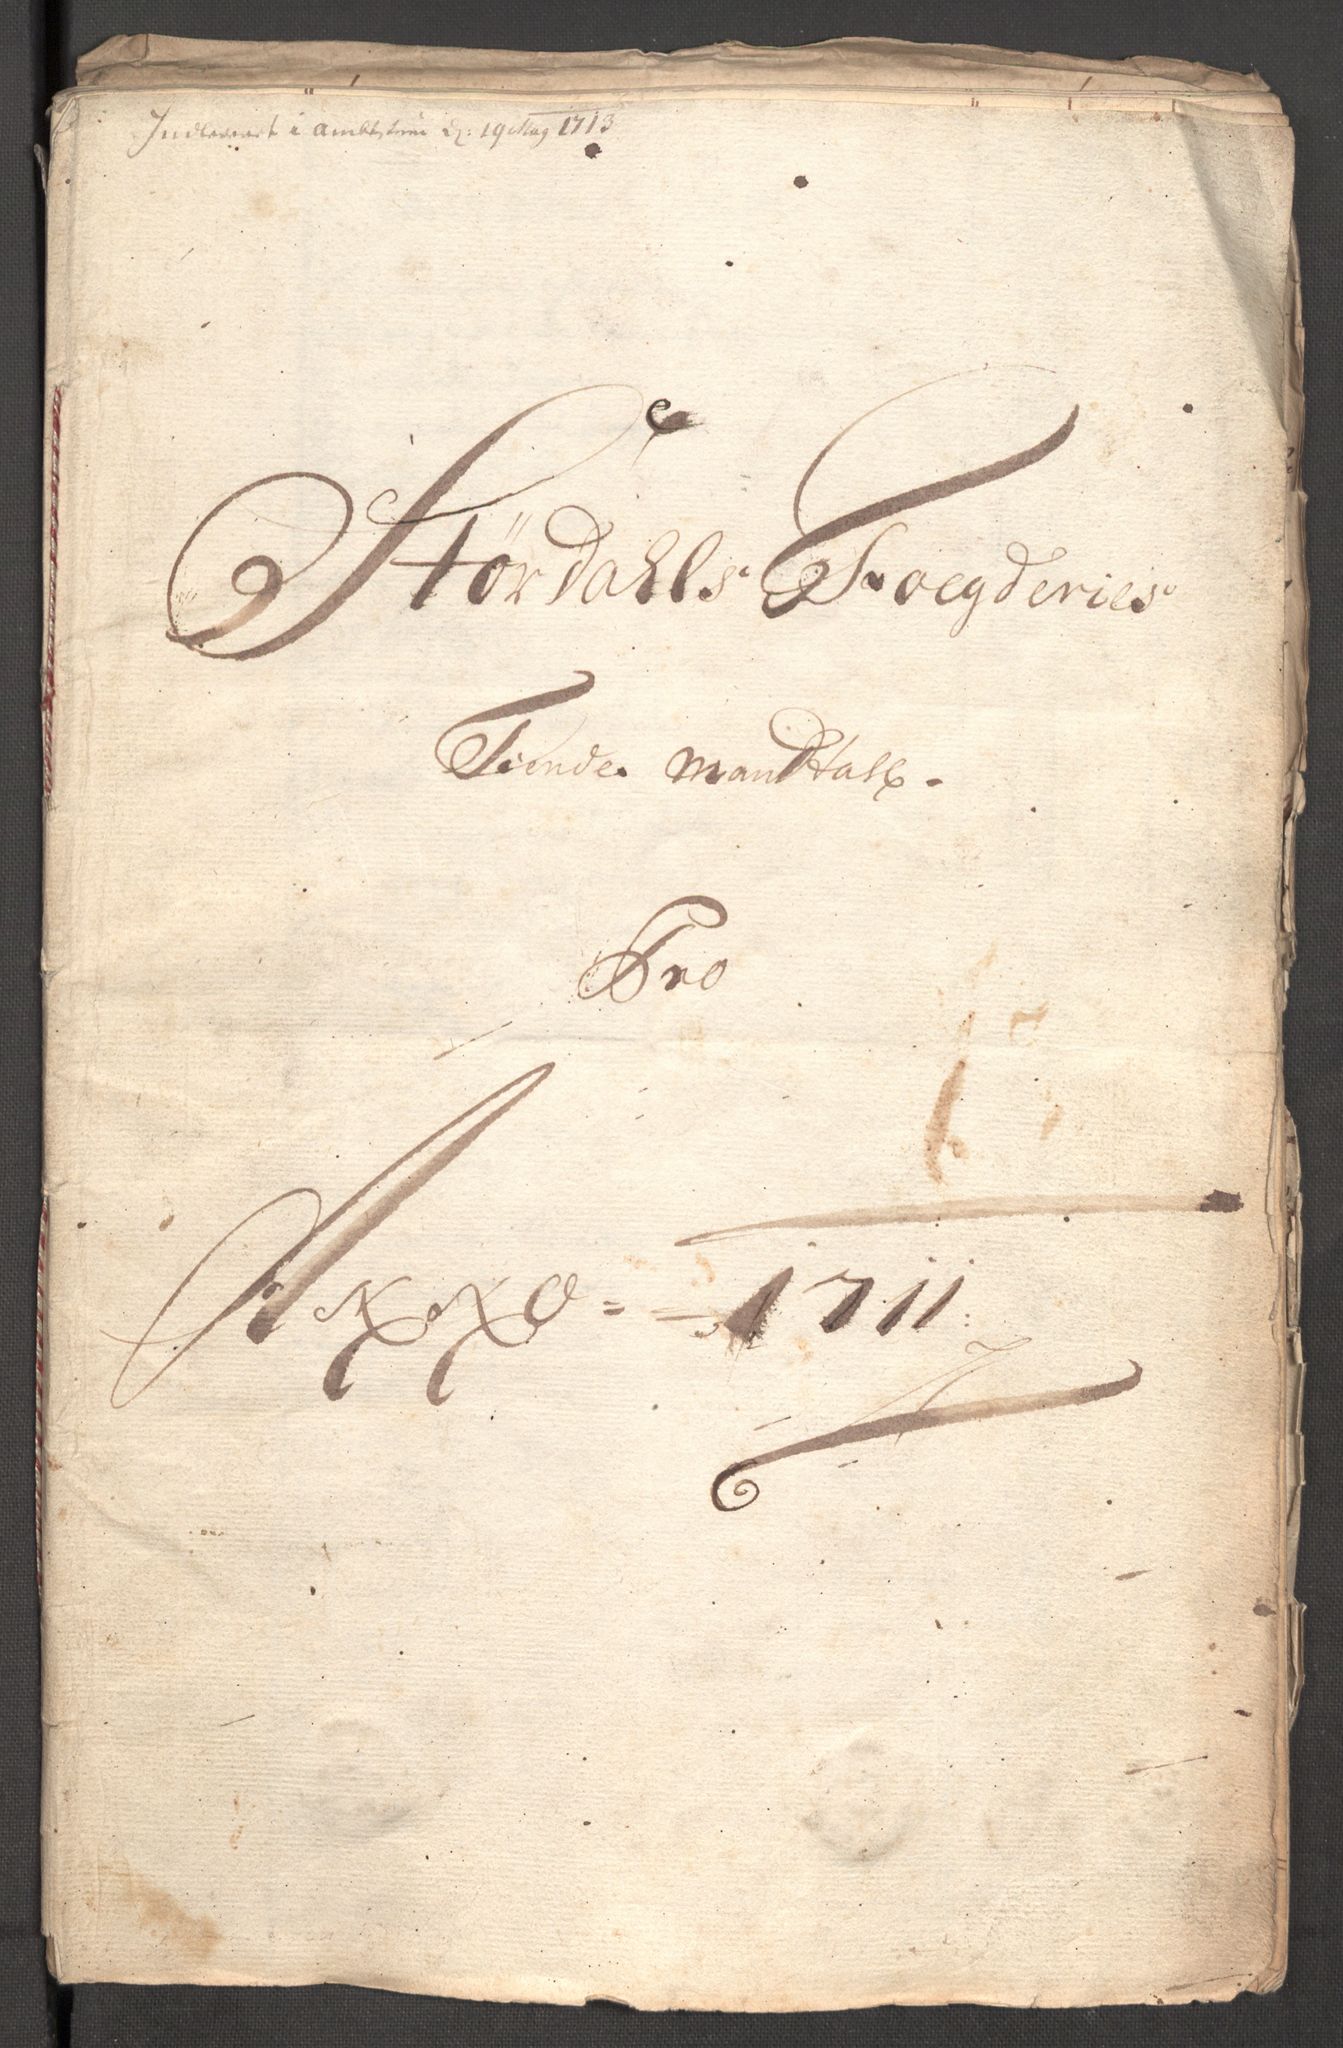 Indleveret i Ambtstuen d: 19 May 1713
Størdahls Foegderies
Tiende Mandtall
Pro
Anno 1711